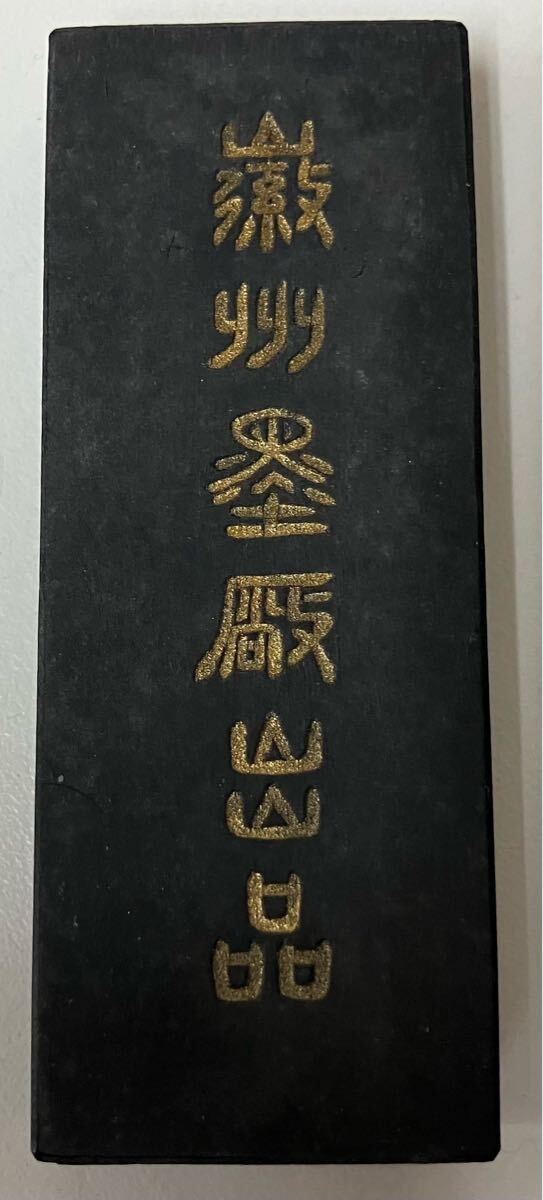 徽州墨厰出品